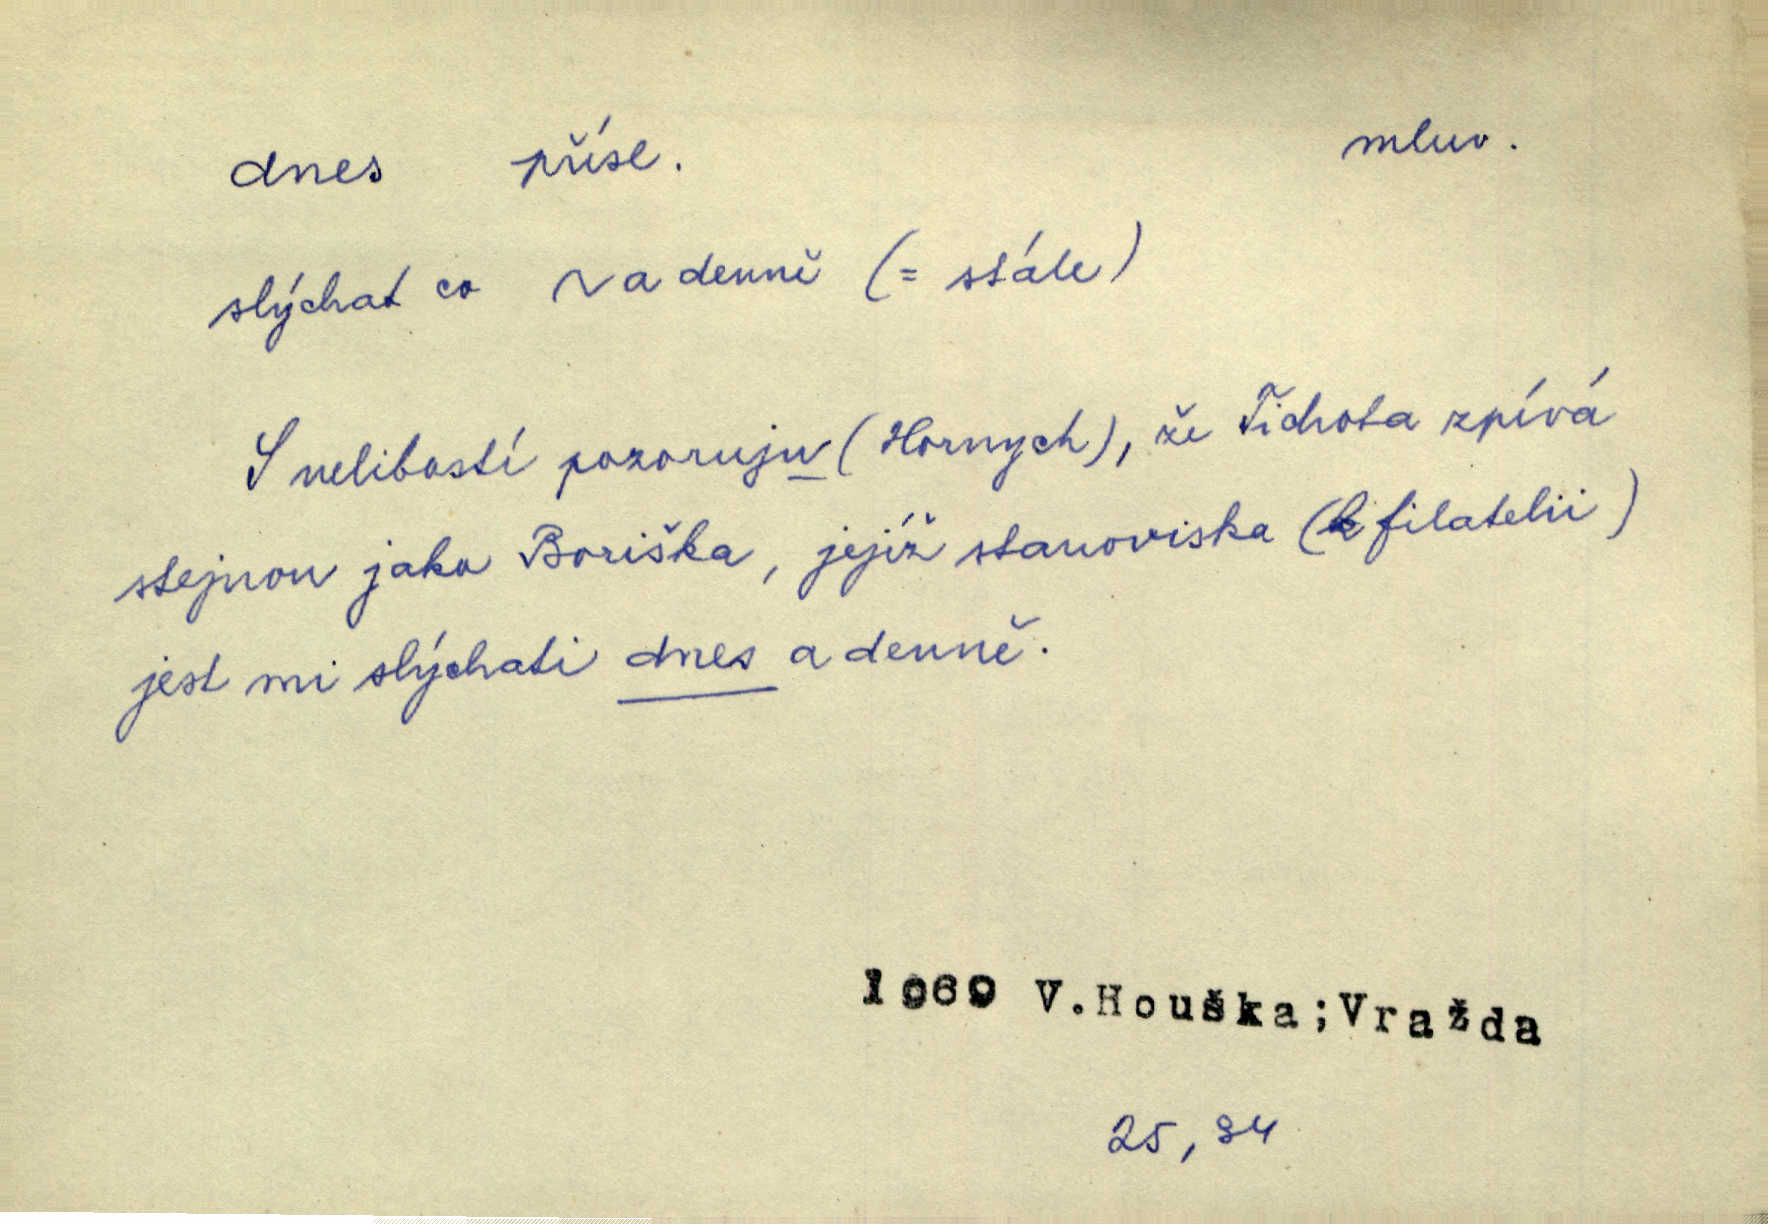 dnes přísl. mluv.
slýchat co ~ a denně (= stále)
S nelibostí pozoruju (Hornych), že Tichota zpívá
stejnou jako Boriška, jejíž stanoviska (k filatelii)
jest mi slýchati dnes a denně.
1969 V.Houška;Vražda
25, 94